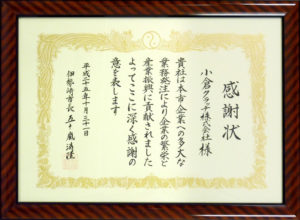 感謝状
小倉クラッチ株式会社 様
貴社は本市企業への多大な
業務発注により企業の繁栄と
産業振興に貢献されました
よってここに深く感謝の
意を表します
平成二十五年十月三十一日
伊勢崎市長 五十嵐清隆